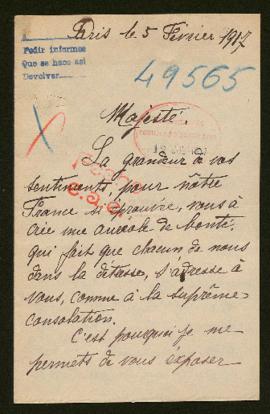 Paris le 5 Février 1917
Pedir informes
Que se hace así
Devolver
49565
Majesté.
La grandeur de vos
sentiments, pour nôtre
France si éprouvée, vous a
crée une auréole de bonté.
qui fait que chacun de nous
dans la détresse, s'adresse à
vous, comme à la suprême-
consolation.
C'est pourquoi je me
permets de vous exposer